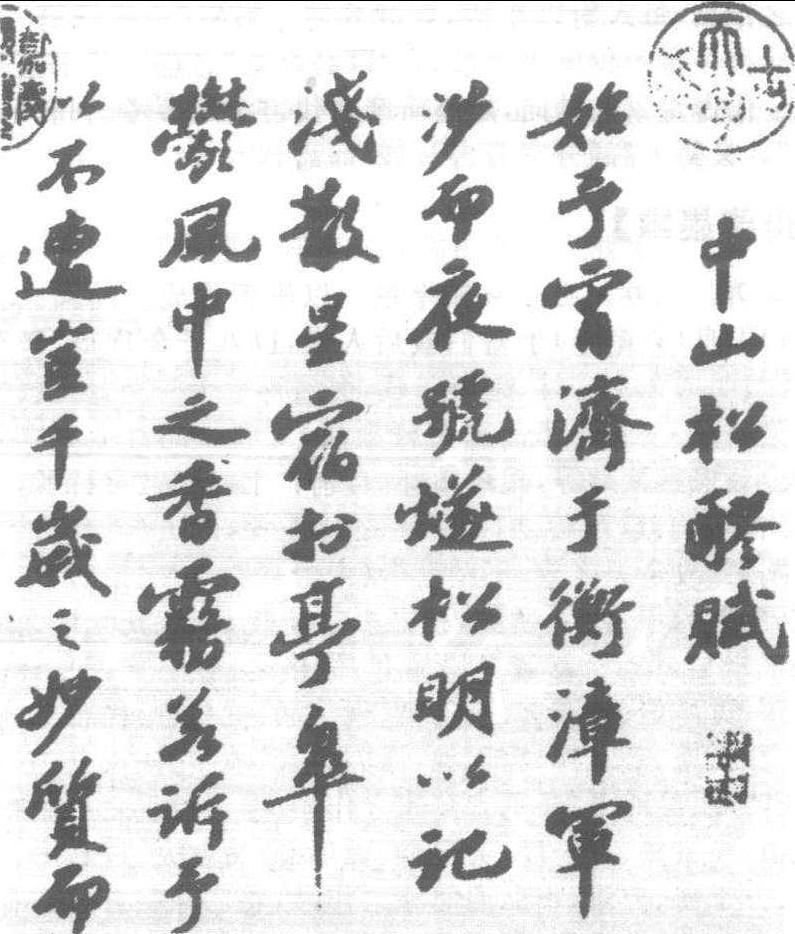 中山松醪賦
始予宵濟于衡漳軍
涉而夜號燧松明以記
淺散星宿於亭皋
鬱風中之香霧若訴予
以不遭豈千歲之妙質而